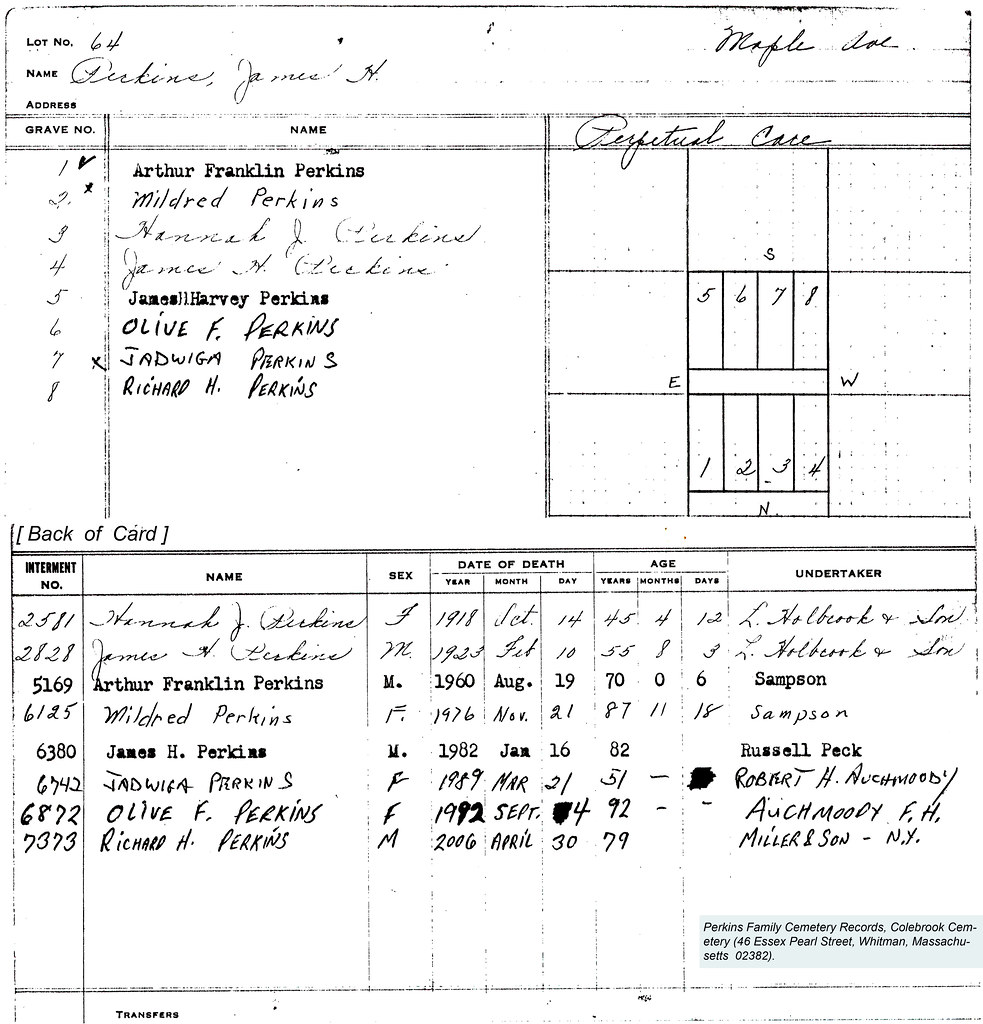 LOT NO. 64 Maple Ave
NAME Perkins, James H.
ADDRESS
GRAVE NO. NAME Perpetual Care
1 ✓ Arthur Franklin Perkins
2. x Mildred Perkins
3 Hannah J. Perkins
4 James H. Perkins
5 James Harvey Perkins
6 OLIVE F. PERKINS
7 x JADWIGA PERKINS
8 RICHARD H. PERKINS
S
5 6 7 8
E W
1 2 3 4
N.
[ Back of Card ]
INTERMENT NO. NAME SEX DATE OF DEATH AGE UNDERTAKER
YEAR MONTH DAY YEARS MONTHS DAYS
2581 Hannah J. Perkins F 1918 Oct. 14 45 4 12 L. Holbrook & Son
2828 James H. Perkins M. 1923 Feb 10 55 8 3 L. Holbrook & Son
5169 Arthur Franklin Perkins M. 1960 Aug. 19 70 0 6 Sampson
6125 Mildred Perkins F. 1976 Nov. 21 87 11 18 Sampson
6380 James H. Perkins M. 1982 Jan 16 82 Russell Peck
6742 JADWIGA PERKINS F 1989 MAR 21 51 — ROBERT H. AUCHMOODY
6872 OLIVE F. PERKINS F 1992 SEPT. 4 92 - - AUCHMOODY F. H.
7373 RICHARD H. PERKINS M 2006 APRIL 30 79 MILLER & SON - N.Y.
Perkins Family Cemetery Records, Colebrook Cem-
etery (46 Essex Pearl Street, Whitman, Massachu-
setts 02382).
TRANSFERS